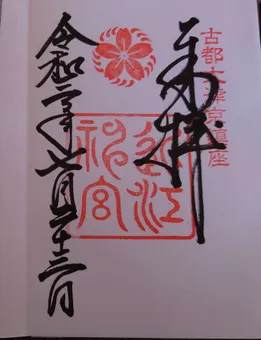 古都大津京鎮座
奉拝
近江
神宮
令和二年七月二十三日